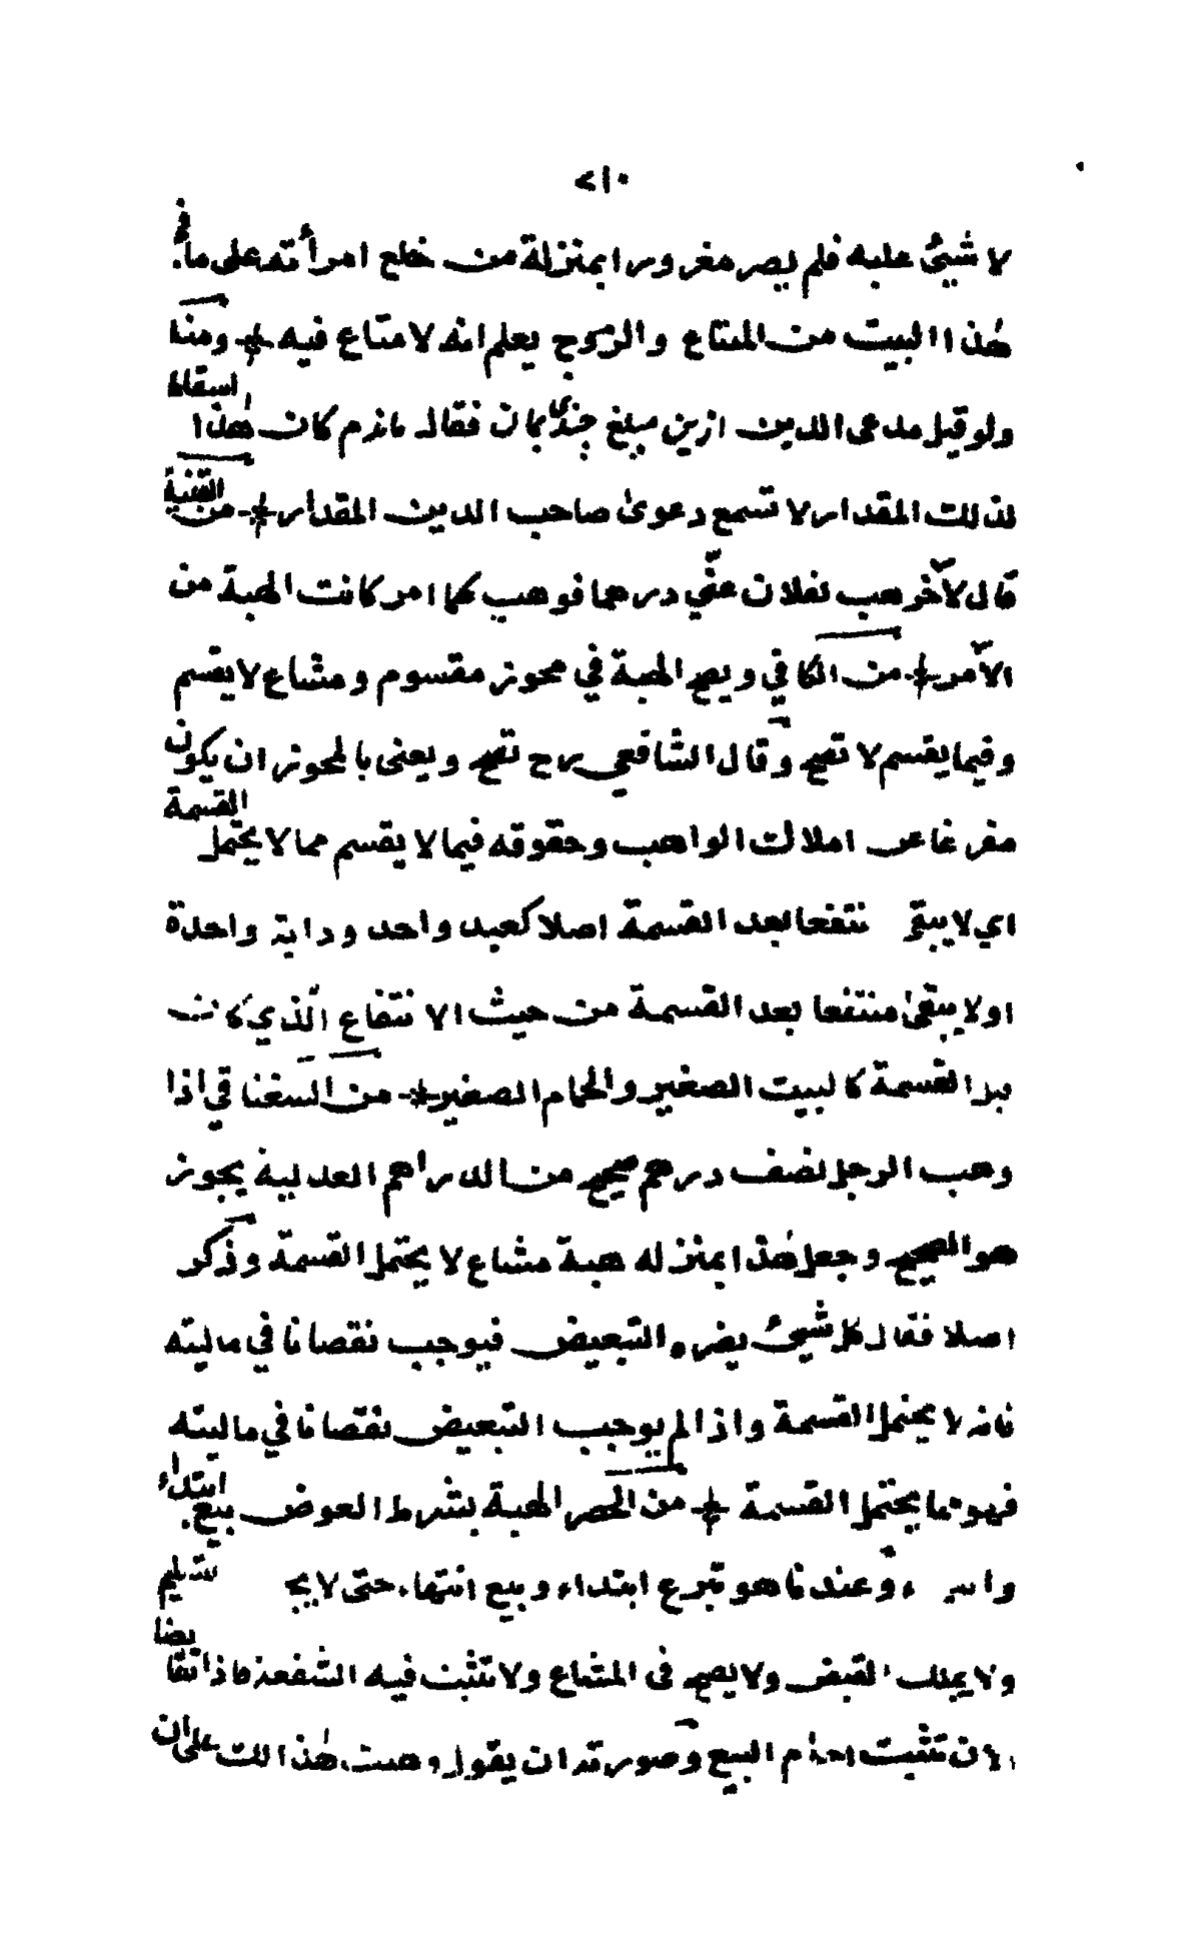 ٢١٠
لا شيئ عليه فلم يصر مغرورا بمنزلة من خلع امرأته على ما في
هذا البيت من المتاع والزوج يعلم انه لا متاع فيه ومنها
ولو قيل مدعى الدين ازين مبلغ چندى بمان فقال ماندم كان هذا اسقاطا
لذلك المقدار لا تسمع دعوى صاحب الدين المقدار من القنية
قال لآخر هب لفلان عنّي درهما فوهب كما امر كانت الهبة من
الآمر من الكافي ويصح الهبة في محوز مقسوم ومشاع لا يقسم
وفيما يقسم لا تصح وقال الشافعي رح تصح ويعنى بالمحوز ان يكون
مفرغا عن املاك الواهب وحقوقه فيما لا يقسم مما لا يحتمل القسمة
اي لا يبقى نتفعا بعد القسمة اصلا كعبد واحد ودابة واحدة
اولا يبقى منتفعا بعد القسمة من حيث الانتفاع الّذي كانت
القسمة كالبيت الصغير والحمام الصغير من السغناقي اذا
وهب الرجل نصف درهم صحيح من الدراهم العدلية يجوز
هو الصحيح وجعل هذا بمنزله هبة مشاع لا يحتمل القسمة وذكر
اصلا فقال كل شيئ يضره التبعيض فيوجب نقصانا في ماليته
فانه لا يحتمل القسمة واذا لم يوجب التبعيض نقصانا في ماليته
فهو مما يحتمل القسمة من الحصر الهبة بشرط العوض بيع ابتداء
وعندنا هو تبرع ابتداء وبيع انتهاء حتى لا تسليم
ولا يملك القبض ولا يصح فى المشاع ولا تثبت فيه الشفعة فاذا تقابضا
الآن تثبت احكام البيع وصورته ان يقول وهبت هذا لك على ان